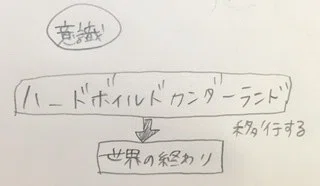 意識
ハードボイルドワンダーランド
移行する
世界の終わり